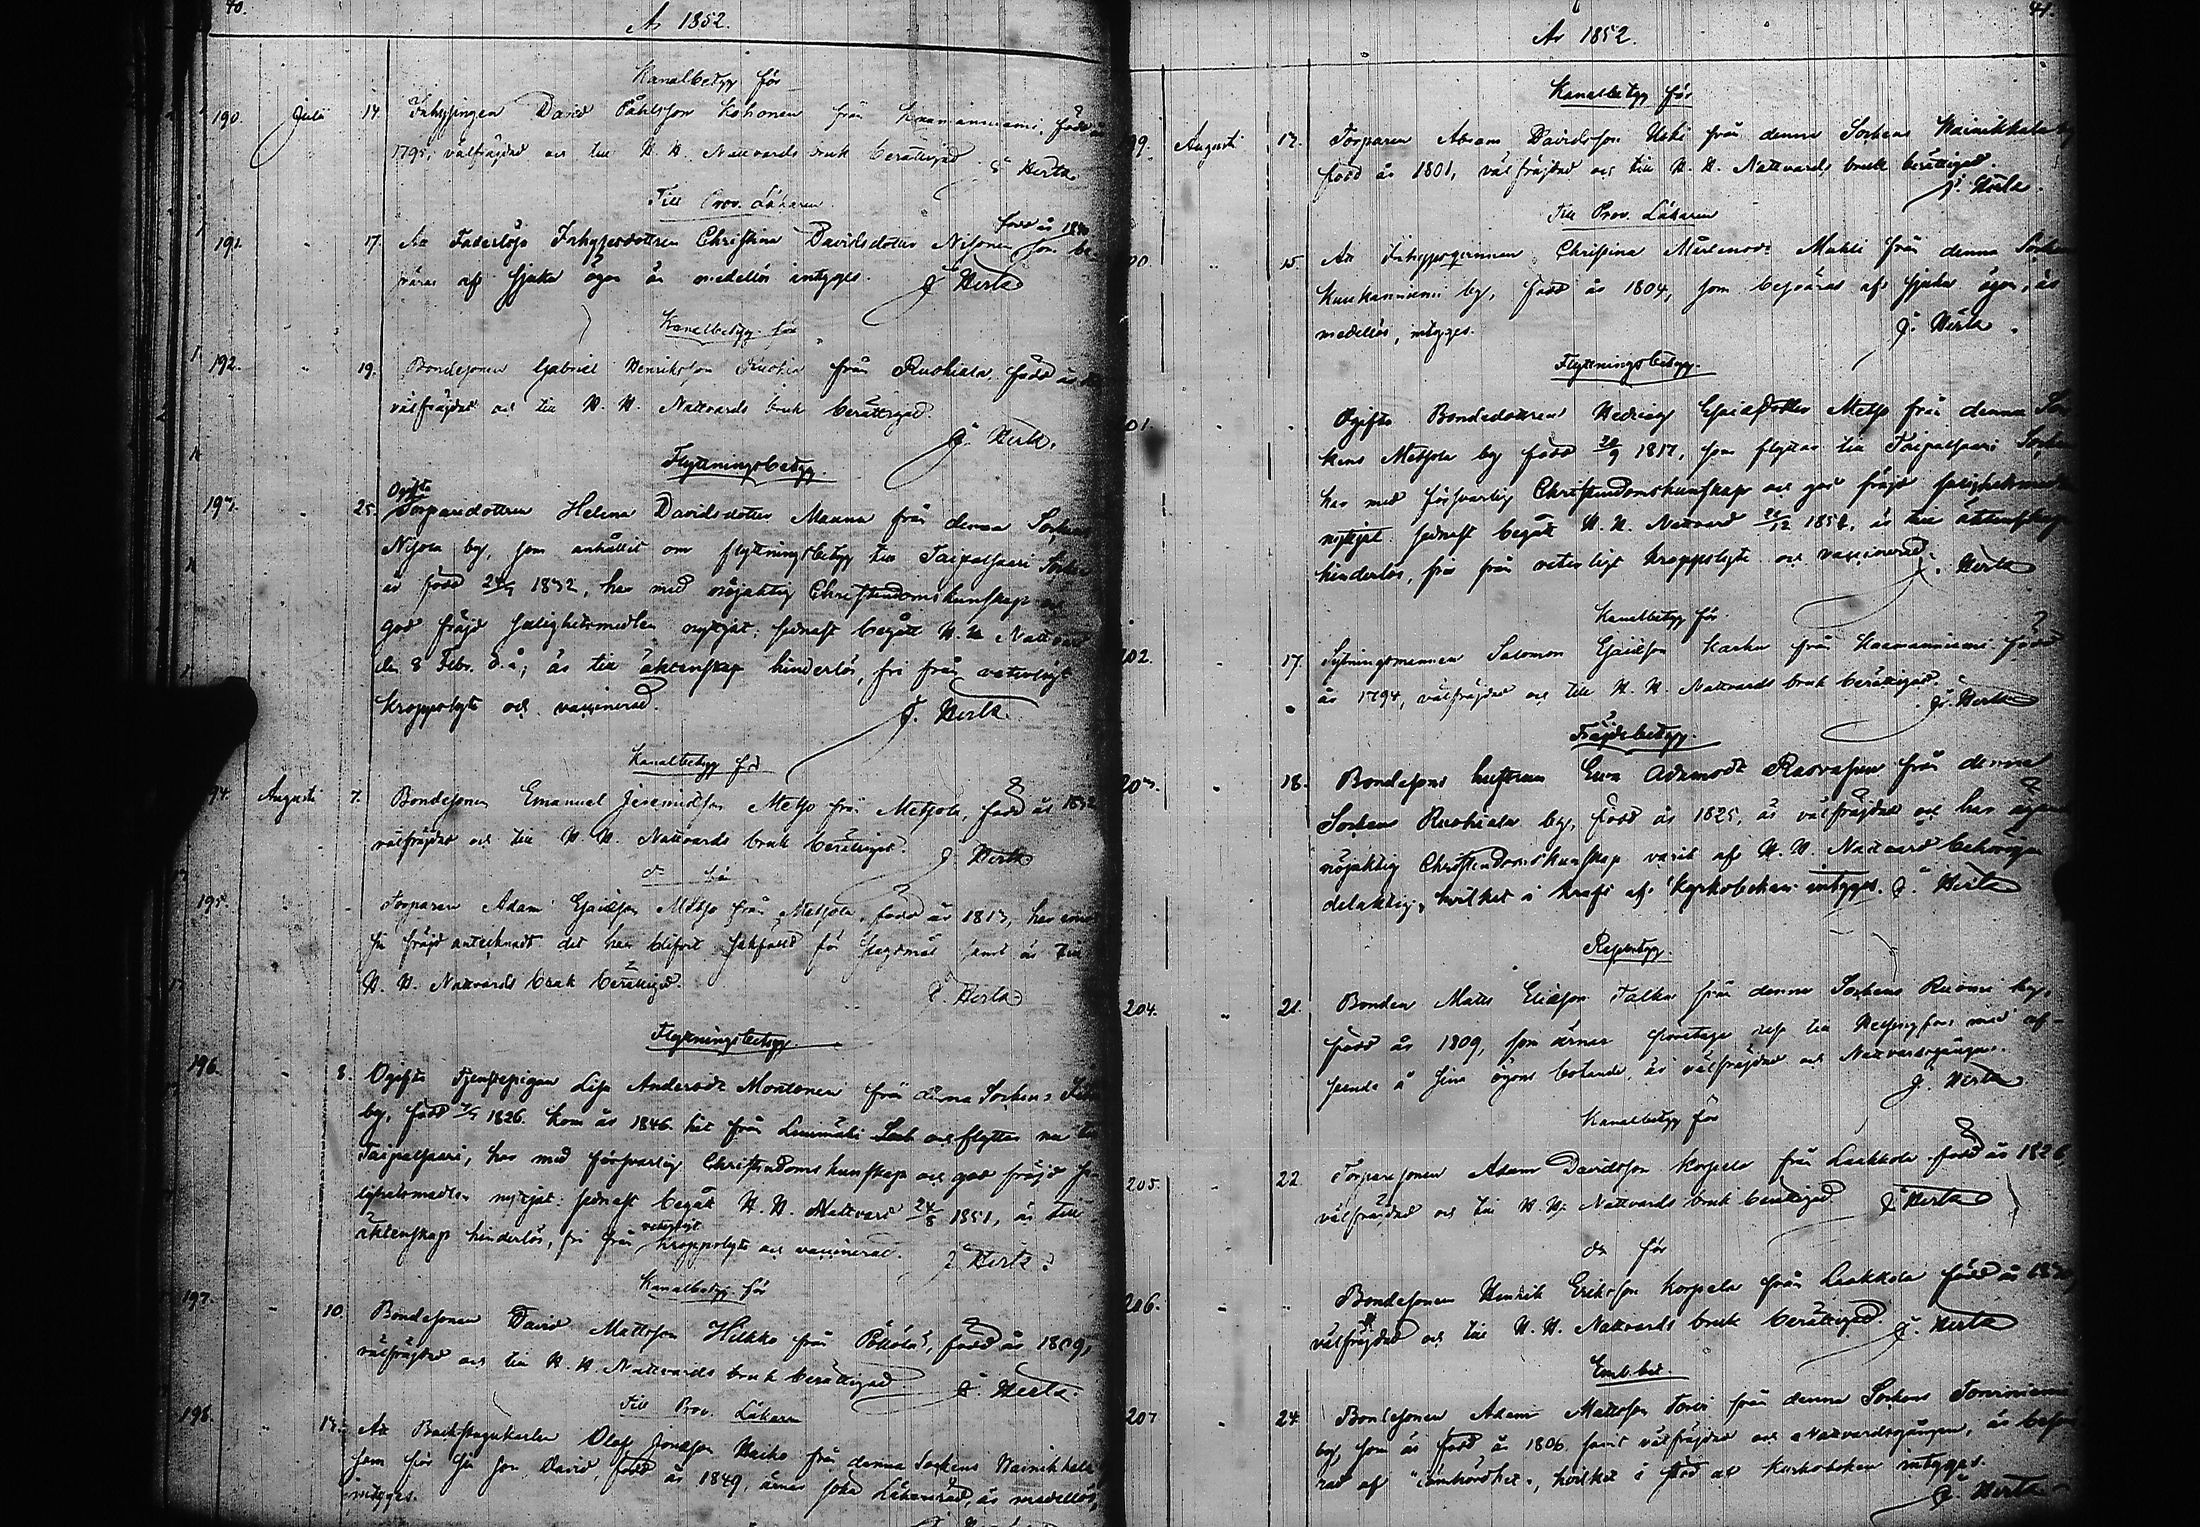 40.
År 1852.
Kanalbetyg för
190. Julii 14. Inhysingen David Påhlsson Kohonen från född år
1795, välfräjdad och till H. H. Nattvards bruk berättigad
J. Herta.
Till Prov. Läkaren
191. 17. Att Faderlösa Inhysesdottren Christina Davidsdotter född år som be-
swäras af sjuka ögon är medellös intygges. J. Herta
Kanalbetyg för
192. 19. Bondesonen Gabriel Henriksson från Ruohiala, född år
välfräjdad och till H. H. Nattvards bruk berättigad.
J. Herta.
Flyttningsbetyg.
Ogifta
193. 25. Torparedottren Helena Davidsdotter Manna från denna Sockens
by, som anhållit om flyttningsbetyg till Taipalsaari Socken
är född 1832, har med nöjaktig Christendomskunskap och
god fräjd salighetsmedlen nyttjat; sednast begått H. H. Nattvard
den 8 Febr. d. å; är till äktenskap hinderlös, fri från veterligt
kroppslyte och vaccinerad.
J. Herta.
Kanalbetyg för
194. Augusti 7. Bondesonen Emanuel Metso från Metsola, född år 1832
välfräjdad och till H. H. Nattvards bruk berättigad. J. Herta
do för
195. Torparen Adam Esaiasson Metso från Metsola, född år 1813, har
sin fräjd antecknadt det han blifvit sakfälld för samt är till
H. H. Nattvards bruk berättigad.
J. Herta
Flyttningsbetyg.
196. 8. Ogifta Tjenstepigan Lisa Andersdr Montonen från denna Sockens
by, född 1826. kom år 1846 hit från Luumäki Sock och flyttar nu till
Taipalsaari, har med försvarlig Christendomskunskap och god fräjd sa-
lighetsmedlen nyttjat: sednast begått H. H. Nattvard 24/8 1851, är till
äktenskap hinderlös, fri från veterligt kroppslyte och vaccinerad. J. Herta.
Kanalbetyg för
197. 10. Bondesonen David Mattsson Hilkko från född år 1809,
välfräjdad och till H. H. Nattvards bruk berättigad J. Herta.
Till Prov. Läkaren
198. 13. Att Backstugukarlen Olof Jonasson från denna Sockens Wainikkala
som för sin son David, född år 1849, ärnar söka Läkareråd, är medellös,
intygges.
41.
År 1852.
Kanalbetyg för
99. Augusti 13. Torparen Abram Davidsson Uski från denna Sockens Wainikkala by
född år 1801, välfräjdad och till H. H. Nattvards bruk berättigad.
J. Herta.
Till Prov. Läkaren
00 15 Att Inhysesqvinnan Christina Mårtensdr från denna Sockens
by, född år 1804, som besväras af sjuka ögon, är
medellös, intygges.
J. Herta.
Flyttningsbetyg.
01. Ogifta Bondedottren Hedvig Esaiasdotter Metso från denna Soc-
kens Metsola by född 1817, som flyttar till Taipalsaari Socken
har med försvarlig Christendomskunskap och god fräjd salighetsmedlen
nyttjat. sednast begått H. H. Nattvard är till äktenskap
hinderlös, fri från veterligt kroppslyte och vaccinerad. J. Herta
Kanalbetyg för
102. 17. Sytningsmannen Salomon Esaiasson från född
år 1794, välfräjdad och till H. H. Nattvards bruk berättigad.
J. Herta
Fräjdebetyg.
203. 18. Bondesons hustrun Eva Adamsdr Rasvasuu från denna
Sockens Ruohiala by, född år 1825, är välfräjdad och har egande
nöjaktig Christendomskunskap varit af H. H. Nattvard behörigen
delaktig, hvilket i kraft af Kyrkoboken intygges. J. Herta
Resebetyg.
204. 21. Bonden Matts Eliasson Talka från denna Sockens by,
född år 1809, som ärnar företaga resa till Helsingfors med af-
seende å sina ögons botande, är välfräjdad och Nattvardsgången.
J. Herta
Kanalbetyg för
205. 22. Torparesonen Adam Davidsson Korpela från Lakkola född år 1826,
välfräjdad och till H. H. Nattvards bruk berättigad J. Herta
do för
206. Bondesonen Henrik Eriksson Korpela från Lakkola född år
välfräjdad och till H. H. Nattvards bruk berättigad. J. Herta
207 24. Bondesonen Adam Mattsson från denna Sockens
by, som är född år 1806 samt välfräjdad och Nattvardsgången, är besvä-
rad af lomhördhet, hvilket i stöd af Kyrkoboken intygges.
J. Herta